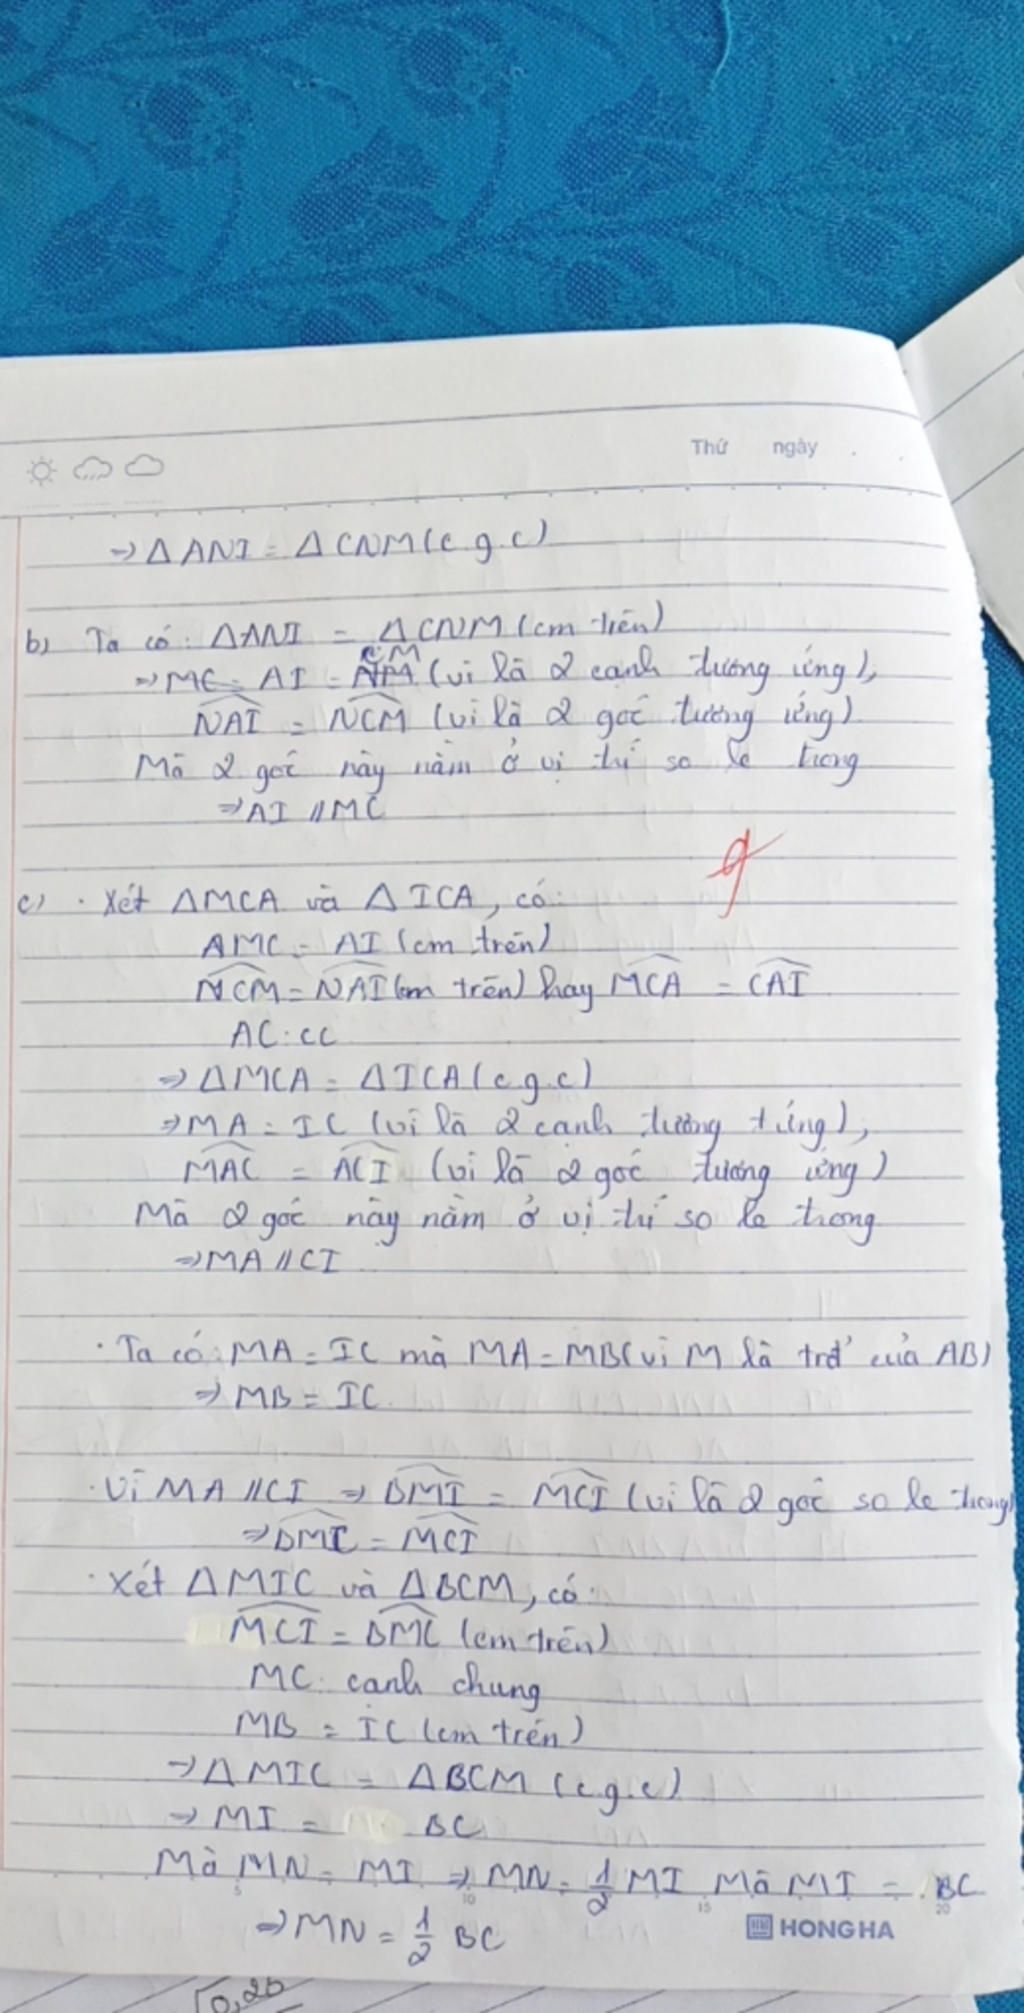 Thứ ngày
⇒ ΔANI = ΔCNM (c.g.c)
b) Ta có: ΔANI = ΔCNM (cm trên)
⇒ MC = AI = CM (vì là 2 cạnh tương ứng),
NAI = NCM (vì là 2 góc tương ứng)
Mà 2 góc này nằm ở vị trí so le trong
⇒ AI // MC
9
c) · Xét ΔMCA và ΔICA, có:
AMC = AI (cm trên)
NCM = NAI (cm trên) hay MCA = CAI
AC: CC
⇒ ΔMCA = ΔICA (c.g.c)
⇒ MA = IC (vì là 2 cạnh tương tứng),
MAC = ACI (vì là 2 góc tương ứng)
Mà 2 góc này nằm ở vị trí so le trong
⇒ MA // CI
· Ta có: MA = IC mà MA = MB (vì M là trđ' của AB)
⇒ MB = IC
· Vì MA // CI ⇒ BMI = MCI (vì là 2 góc so le trong)
⇒ BMC = MCI
· Xét ΔMIC và ΔBCM, có:
MCI = BMC (cm trên)
MC: cạnh chung
MB = IC (cm trên)
⇒ ΔMIC = ΔBCM (c.g.c)
⇒ MI = BC
Mà MN = MI ⇒ MN = 1/2 MI Mà MI = BC
5 10 15 20
⇒ MN = 1/2 BC
HONG HA
√0,25